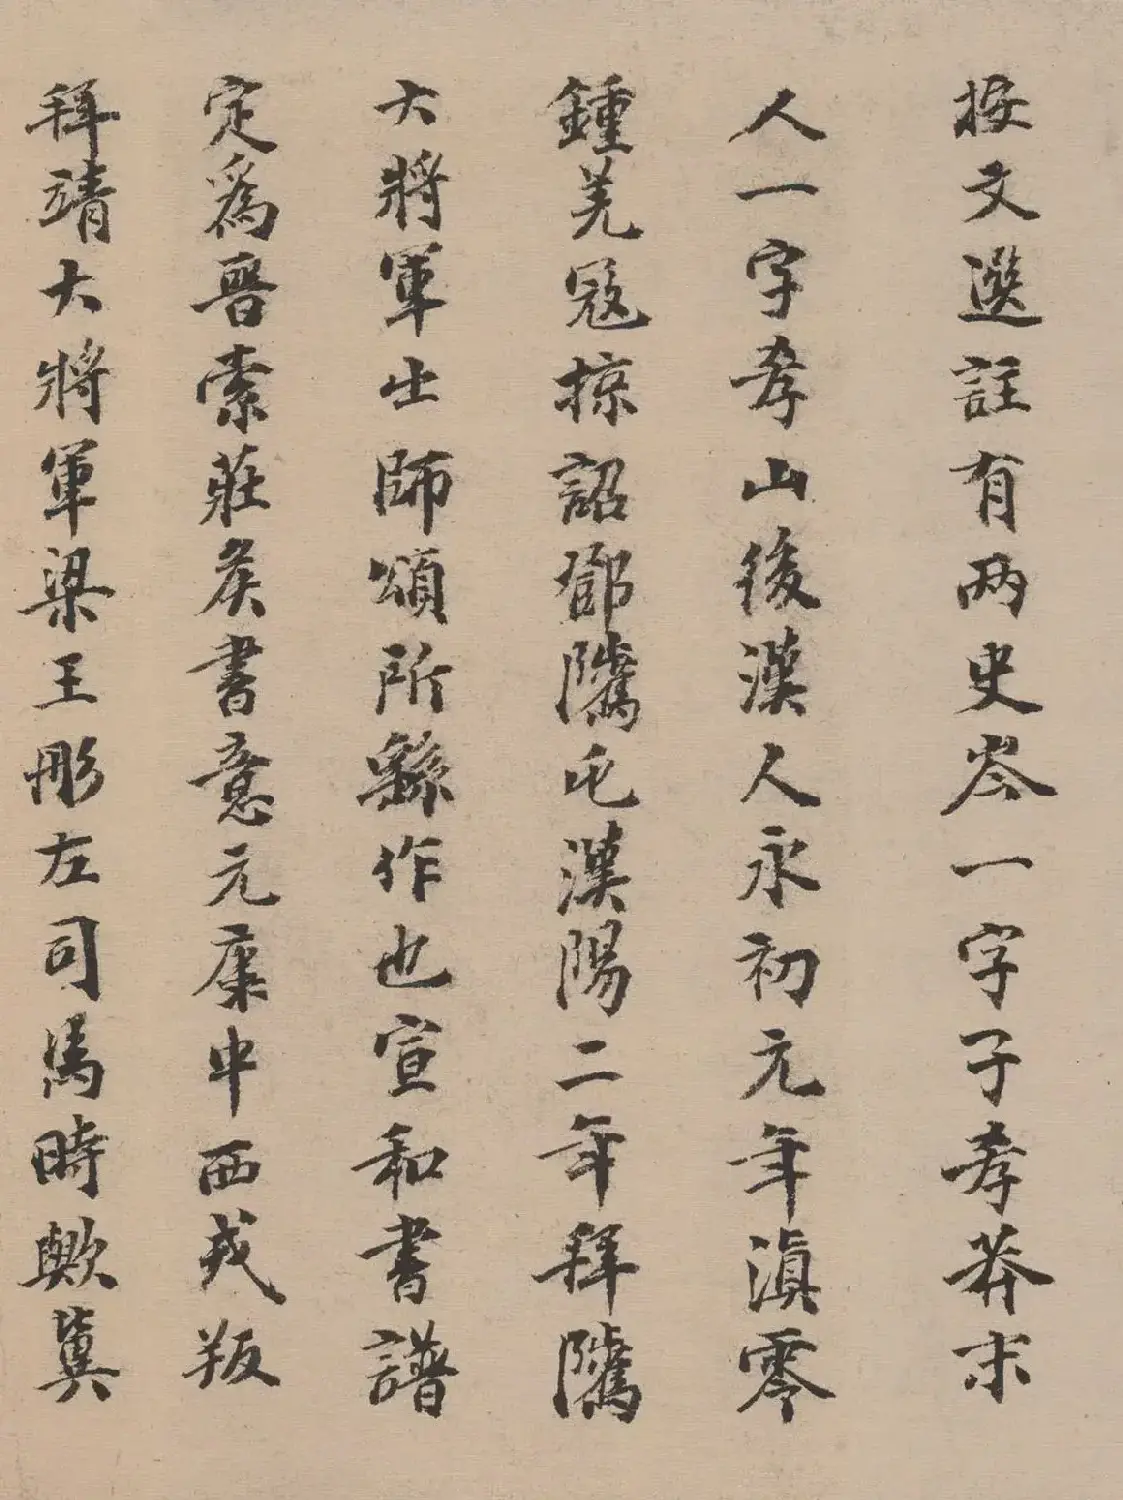 按文選註有两史岑一字子孝莽末
人一字孝山後漢人永初元年滇零
鍾羌寇掠詔鄧隲屯漢陽二年拜隲
大將軍出師頌所繇作也宣和書譜
定為晉索莊矦書意元康中西戎叛
拜靖大將軍梁王彤左司馬時歟冀